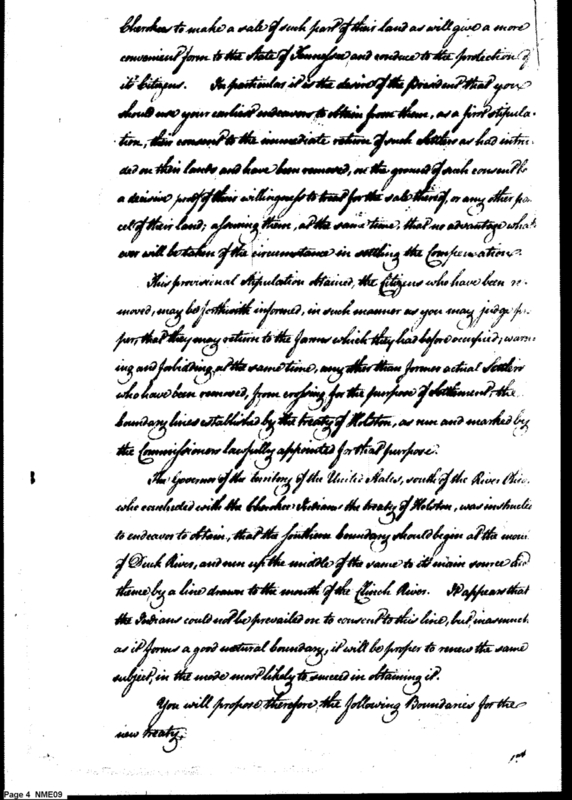 Cherokees to make a sale of such part of their land as will give a more
convenient form to the State of Tennessee and conduce to the protection of
it's Citizens. In particular it is the desire of the President that you
should use your earliest endeavors to obtain from them, as a first stipula-
tion, their consent to the immediate return of such Settlers as had intru-
ded on their lands and have been removed, on the ground of such consent be
a decisive proof of their willingness to treat for the sale thereof, or any other par
cel of their land; assuring them, at the same time, that no advantage what
ever will be taken of the circumstance in settling the Compensation.
This provisional stipulation obtained, the Citizens who have been re
moved, may be forthwith informed, in such manner as you may judge pro
per, that they may return to the farms which they had before occupied; warn
ing and forbidding at the same time, any other than former actual Settlers
who have been removed, from crossing for the purpose of Settlement, the
boundary lines established by the treaty of Holston, as run and marked by
the Commissioners lawfully appointed for that purpose.
The Governor of the territory of the United States, south of the River Ohio,
who concluded with the Cherokee Indians the treaty of Holston, was instructed
to endeavor to obtain, that the southern boundary should begin at the mouth
of Duck River, and run up the middle of the same to its main source and
thence by a line drawn to the mouth of the Clinch River. It appears that
the Indians could not be prevailed on to consent to this line, but inasmuch
as it forms a good natural boundary, it will be proper to renew the same
subject, in the mode most likely to succeed in obtaining it.
You will propose therefore the following Boundaries for the
new treaty.
1st
Page 4 NME09